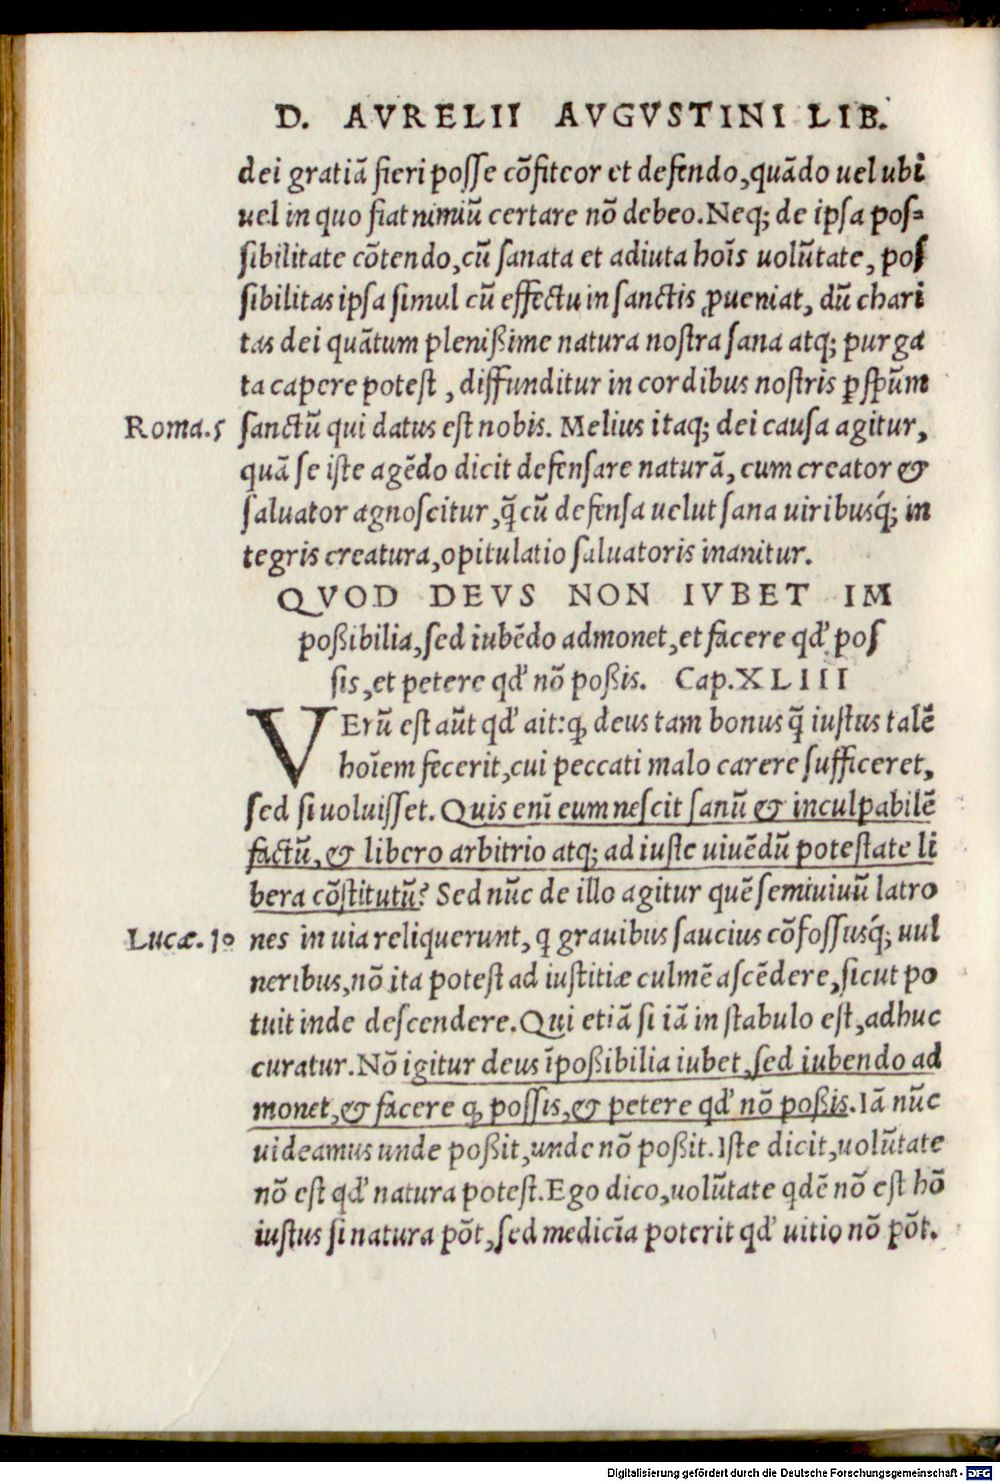 D. AVRELII AVGVSTINI LIB.
dei gratiã fieri posse cõfiteor et defendo, quãdo uel ubi
uel in quo fiat nimiũ certare nõ debeo. Neq; de ipsa pos=
sibilitate cõtendo, cũ sanata et adiuta hoĩs uolũtate, pos
sibilitas ipsa simul cũ effectu in sanctis ꝓueniat, dũ chari
tas dei quãtum plenißime natura nostra sana atq; purga
ta capere potest, diffunditur in cordibus nostris ꝑ sp̃um
Roma.5 sanctũ qui datus est nobis. Melius itaq; dei causa agitur,
quã se iste agẽdo dicit defensare naturã, cum creator &
saluator agnoscitur, q̃ cũ defensa uelut sana uiribusq́; in
tegris creatura, opitulatio saluatoris inanitur.
QVOD DEVS NON IVBET IM
poßibilia, sed iubẽdo admonet, et facere qd' pos
sis, et petere qd' nõ poßis. Cap. XLIII
VErũ est aũt qd' ait: ꝙ deus tam bonus q̃ iustus talẽ
hoĩem fecerit, cui peccati malo carere sufficeret,
sed si uoluisset. Quis enĩ eum nescit sanũ & inculpabilẽ
factũ, & libero arbitrio atq; ad iuste uiuẽdũ potestate li
bera cõstitutũ? Sed nũc de illo agitur quẽ semiuiuũ latro
Lucæ. 10 nes in uia reliquerunt, q grauibus saucius cõfossusq́; uul
neribus, nõ ita potest ad iustitiæ culmẽ ascẽdere, sicut po
tuit inde descendere. Qui etiã si iã in stabulo est, adhuc
curatur. Nõ igitur deus ĩpoßibilia iubet, sed iubendo ad
monet, & facere ꝙ possis, & petere qd' nõ poßis. Iã nũc
uideamus unde poßit, unde nõ poßit. Iste dicit, uolũtate
nõ est qd' natura potest. Ego dico, uolũtate qdẽ nõ est hõ
iustus si natura põt, sed medicĩa poterit qd' uitio nõ põt.
Digitalisierung gefördert durch die Deutsche Forschungsgemeinschaft - DFG